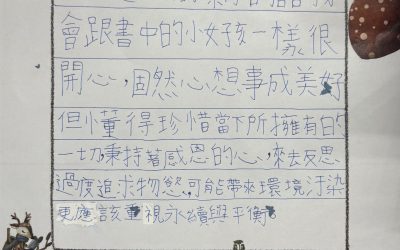 會跟書中的小女孩一樣很
開心，固然心想事成美好
但懂得珍惜當下所擁有的
一切秉持著感恩的心，來去反思
過度追求物慾，可能帶來環境汙染
更應該重視永續與平衡。